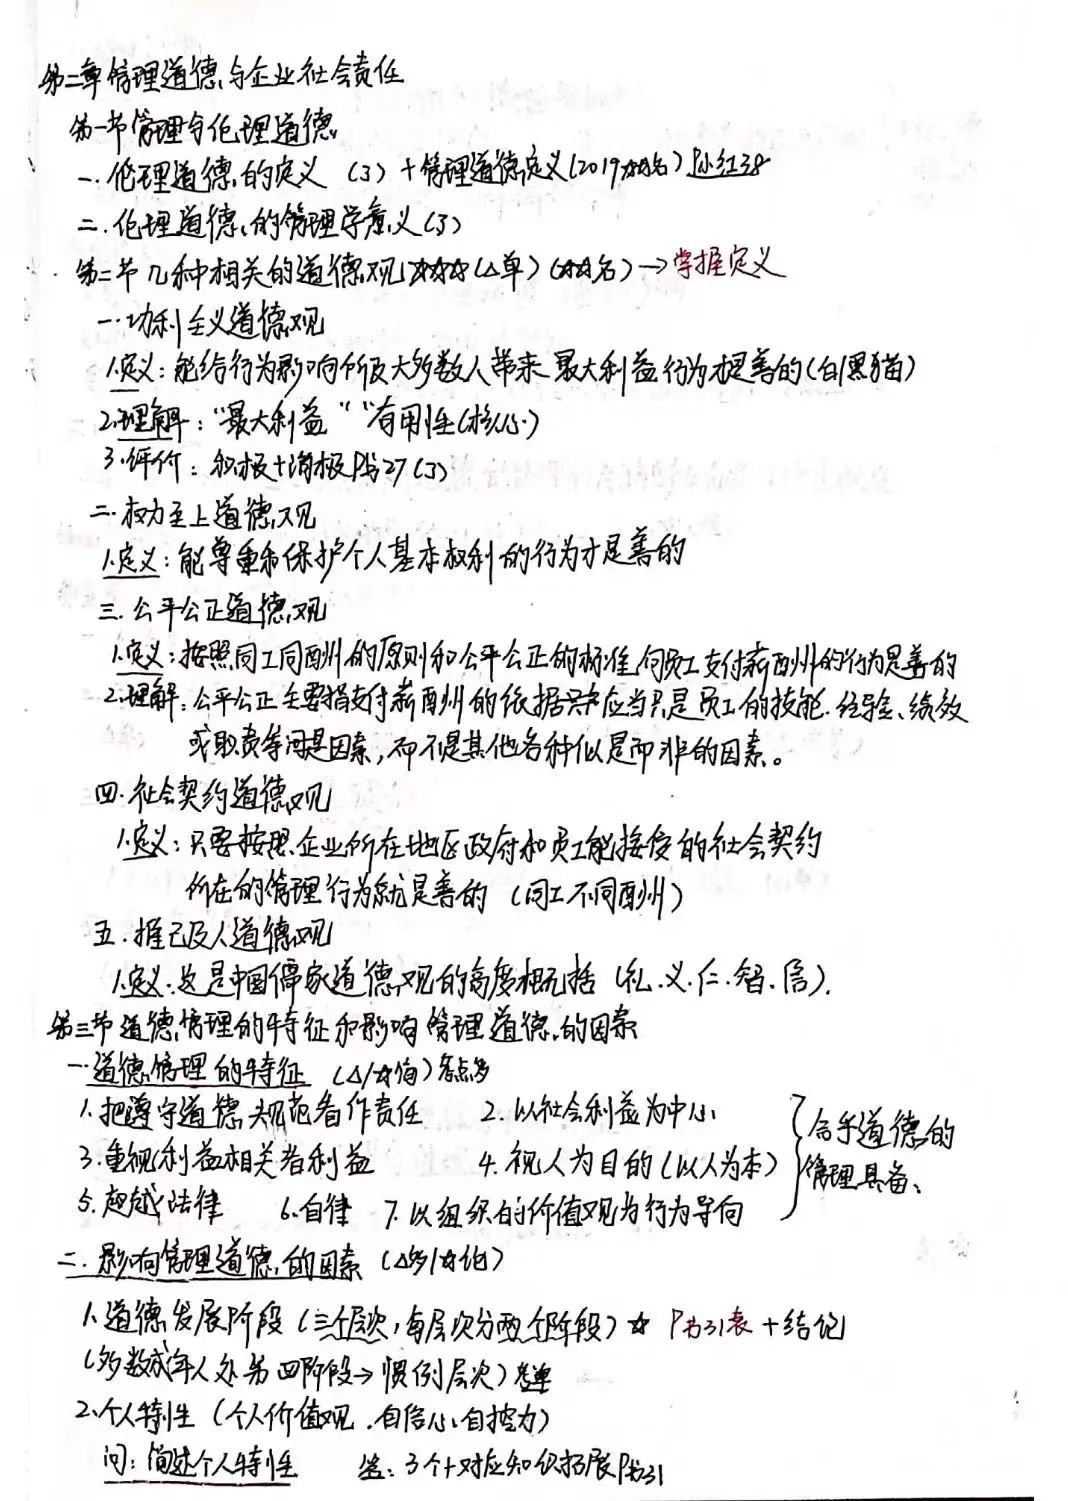 第二章管理道德与企业社会责任
第一节管理与伦理道德
一.伦理道德的定义 (3)+管理道德定义(2019名)
二.伦理道德的管理学意义(3)
第二节几种相关的道德观☆☆☆(△单)(☆☆名)→掌握定义
一.功利主义道德观
1.定义:能给行为影响所及大多数人带来最大利益行为才是善的(白/黑猫)
2.理解:“最大利益”“有用性(核心)
3.评价:积极+消极P书27(3)
二.权力至上道德观
1.定义:能尊重和保护个人基本权利的行为才是善的
三.公平公正道德观
1.定义:按照同工同酬的原则和公平公正的标准向员工支付薪酬的行为是善的
2.理解:公平公正主要指支付薪酬的依据应当只是员工的技能.经验、绩效
或职责等因素,而不是其他各种似是而非的因素。
四.社会契约道德观
1.定义:只要按照企业所在地区政府和员工能接受的社会契约
所在的管理行为就是善的(同工不同酬)
五.推己及人道德观
1.定义:这是中国儒家道德观的高度概括(礼.义.仁.智.信).
第三节道德管理的特征和影响管理道德的因素
一.道德管理的特征 (△/☆简)考点多
1.把遵守道德规范看作责任 2.以社会利益为中心
3.重视利益相关者利益 4.视人为目的(以人为本)
合乎道德的
管理具备、
5.超越法律 6.自律 7.以组织的价值观为行为导向
二.影响管理道德的因素(△多/☆论)
1.道德发展阶段(三个层次,每层次分两个阶段)☆ P书31表+结论
(多数成年人处第四阶段→惯例层次)考单
2.个人特性(个人价值观.自信心.自控力)
问:简述个人特性 答:3个+对应知识拓展P书31